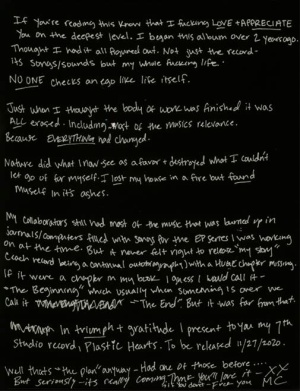 If you're reading this know that I fucking LOVE + APPRECIATE
you on the deepest level. I began this album over 2 years ago.
Thought I had it all figured out. Not just the record -
its songs/sounds but my whole fucking life.
NO ONE checks an ego like life itself.
Just when I thought the body of work was finished it was
ALL erased. Including most of the musics relevance.
Because EVERYTHING had changed.
Nature did what I now see as a favor + destroyed what I couldn't
let go of for myself. I lost my house in a fire but found
myself in it's ashes.
My collaborators still had most of the music that was burned up in
journals/computers filled with songs for the EP series I was working
on at the time. But it never felt right to release "my story"
(each record being a continual autobiography) with a HUGE chapter missing.
If it were a chapter in my book I guess I would call it -
"The Beginning" which usually when something is over we
call it "The End" But it was far from that.
In triumph + gratitude I present to you my 7th
studio record, Plastic Hearts. To be released 11/27/2020.
Well thats "the plan" anyway - Had one of those before...
But seriously - it's really coming. Think you'll love it - XX
If you don't - F you MC